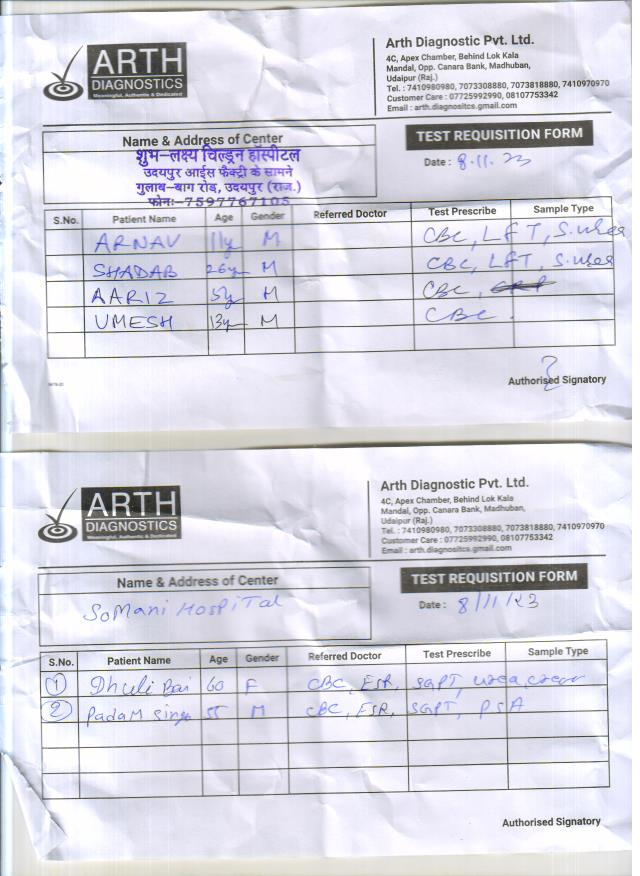 ARTH
DIAGNOSTICS
Meaningful, Authentic & Dedicated
Arth Diagnostic Pvt. Ltd.
4C, Apex Chamber, Behind Lok Kala
Mandal, Opp. Canara Bank, Madhuban,
Udaipur (Raj.)
Tel. : 7410980980, 7073308880, 7073818880, 7410970970
Customer Care : 07725992990, 08107753342
Email : arth.diagnositcs.gmail.com
Name & Address of Center
शुभ-लक्ष्य चिल्ड्रन हॉस्पीटल
उदयपुर आईस फैक्ट्री के सामने
गुलाब-बाग रोड, उदयपुर (राज.)
फोनः-7597767105
TEST REQUISITION FORM
Date : 8.11.23
S.No. Patient Name Age Gender Referred Doctor Test Prescribe Sample Type
ARNAV 11y M CBC, LFT, S.urea
SHADAB 26y M CBC, LFT, S.urea
AARIZ 5y M CBC,
UMESH 13y M CBC.
Authorised Signatory
ARTH
DIAGNOSTICS
Meaningful, Authentic & Dedicated
Arth Diagnostic Pvt. Ltd.
4C, Apex Chamber, Behind Lok Kala
Mandal, Opp. Canara Bank, Madhuban,
Udaipur (Raj.)
Tel. : 7410980980, 7073308880, 7073818880, 7410970970
Customer Care : 07725992990, 08107753342
Email : arth.diagnositcs.gmail.com
Name & Address of Center
SoMani HospiTal
TEST REQUISITION FORM
Date : 8/11/23
S.No. Patient Name Age Gender Referred Doctor Test Prescribe Sample Type
1 Dhuli Bai 60 F CBC, ESR, SGPT, urea
2 Padam Singh 55 M CBC, ESR, SGPT, PSA
Authorised Signatory